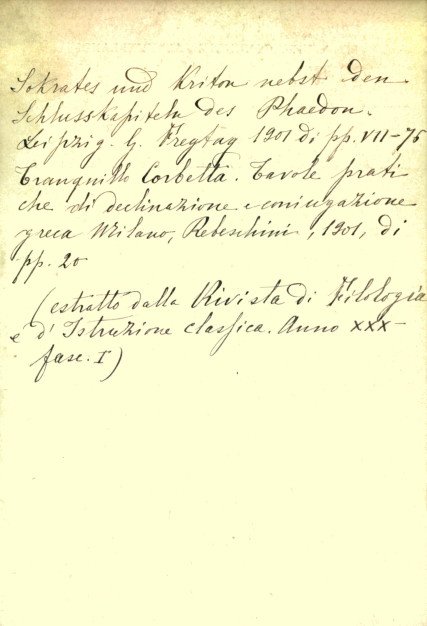 Sokrates und Kriton nebst den
Schlusskapiteln des Phaedon.
Leipzig. G. Freytag 1901 di pp. VII-76
Tranquillo Corbetta. Tavole prati
che di declinazione e coniugazione
greca Milano, Rebeschini, 1901, di
pp. 20
(estratto dalla Rivista di Filologia
e d'Istruzione classica. Anno XXX-
fasc. I)